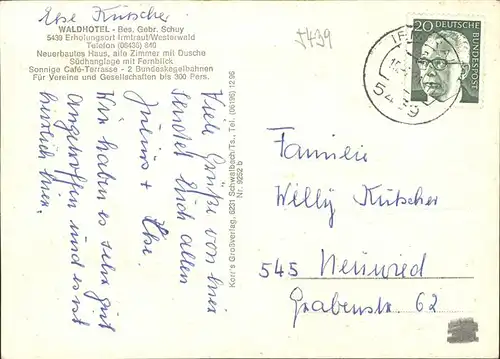 Else Kutscher
5439
WALDHOTEL - Bes. Gebr. Schuy
5439 Erholungsort Irmtraut/Westerwald
Telefon (06436) 840
Neuerbautes Haus, alle Zimmer mit Dusche
Südhanglage mit Fernblick
Sonnige Café-Terrasse - 2 Bundeskegelbahnen
Für Vereine und Gesellschaften bis 300 Pers.
Viele Grüße von hier
sendet Euch allen
Julius + Else.
Wir haben es sehr gut
angetroffen und es ist
herrlich hier.
Korr's Großverlag, 6231 Schwalbach Ts., Tel. (06196) 12 96
Nr. 9252 b
20 DEUTSCHE
BUNDESPOST
5439
Familie
Willy Kutscher
545 Neuwied
Grabenstr. 62